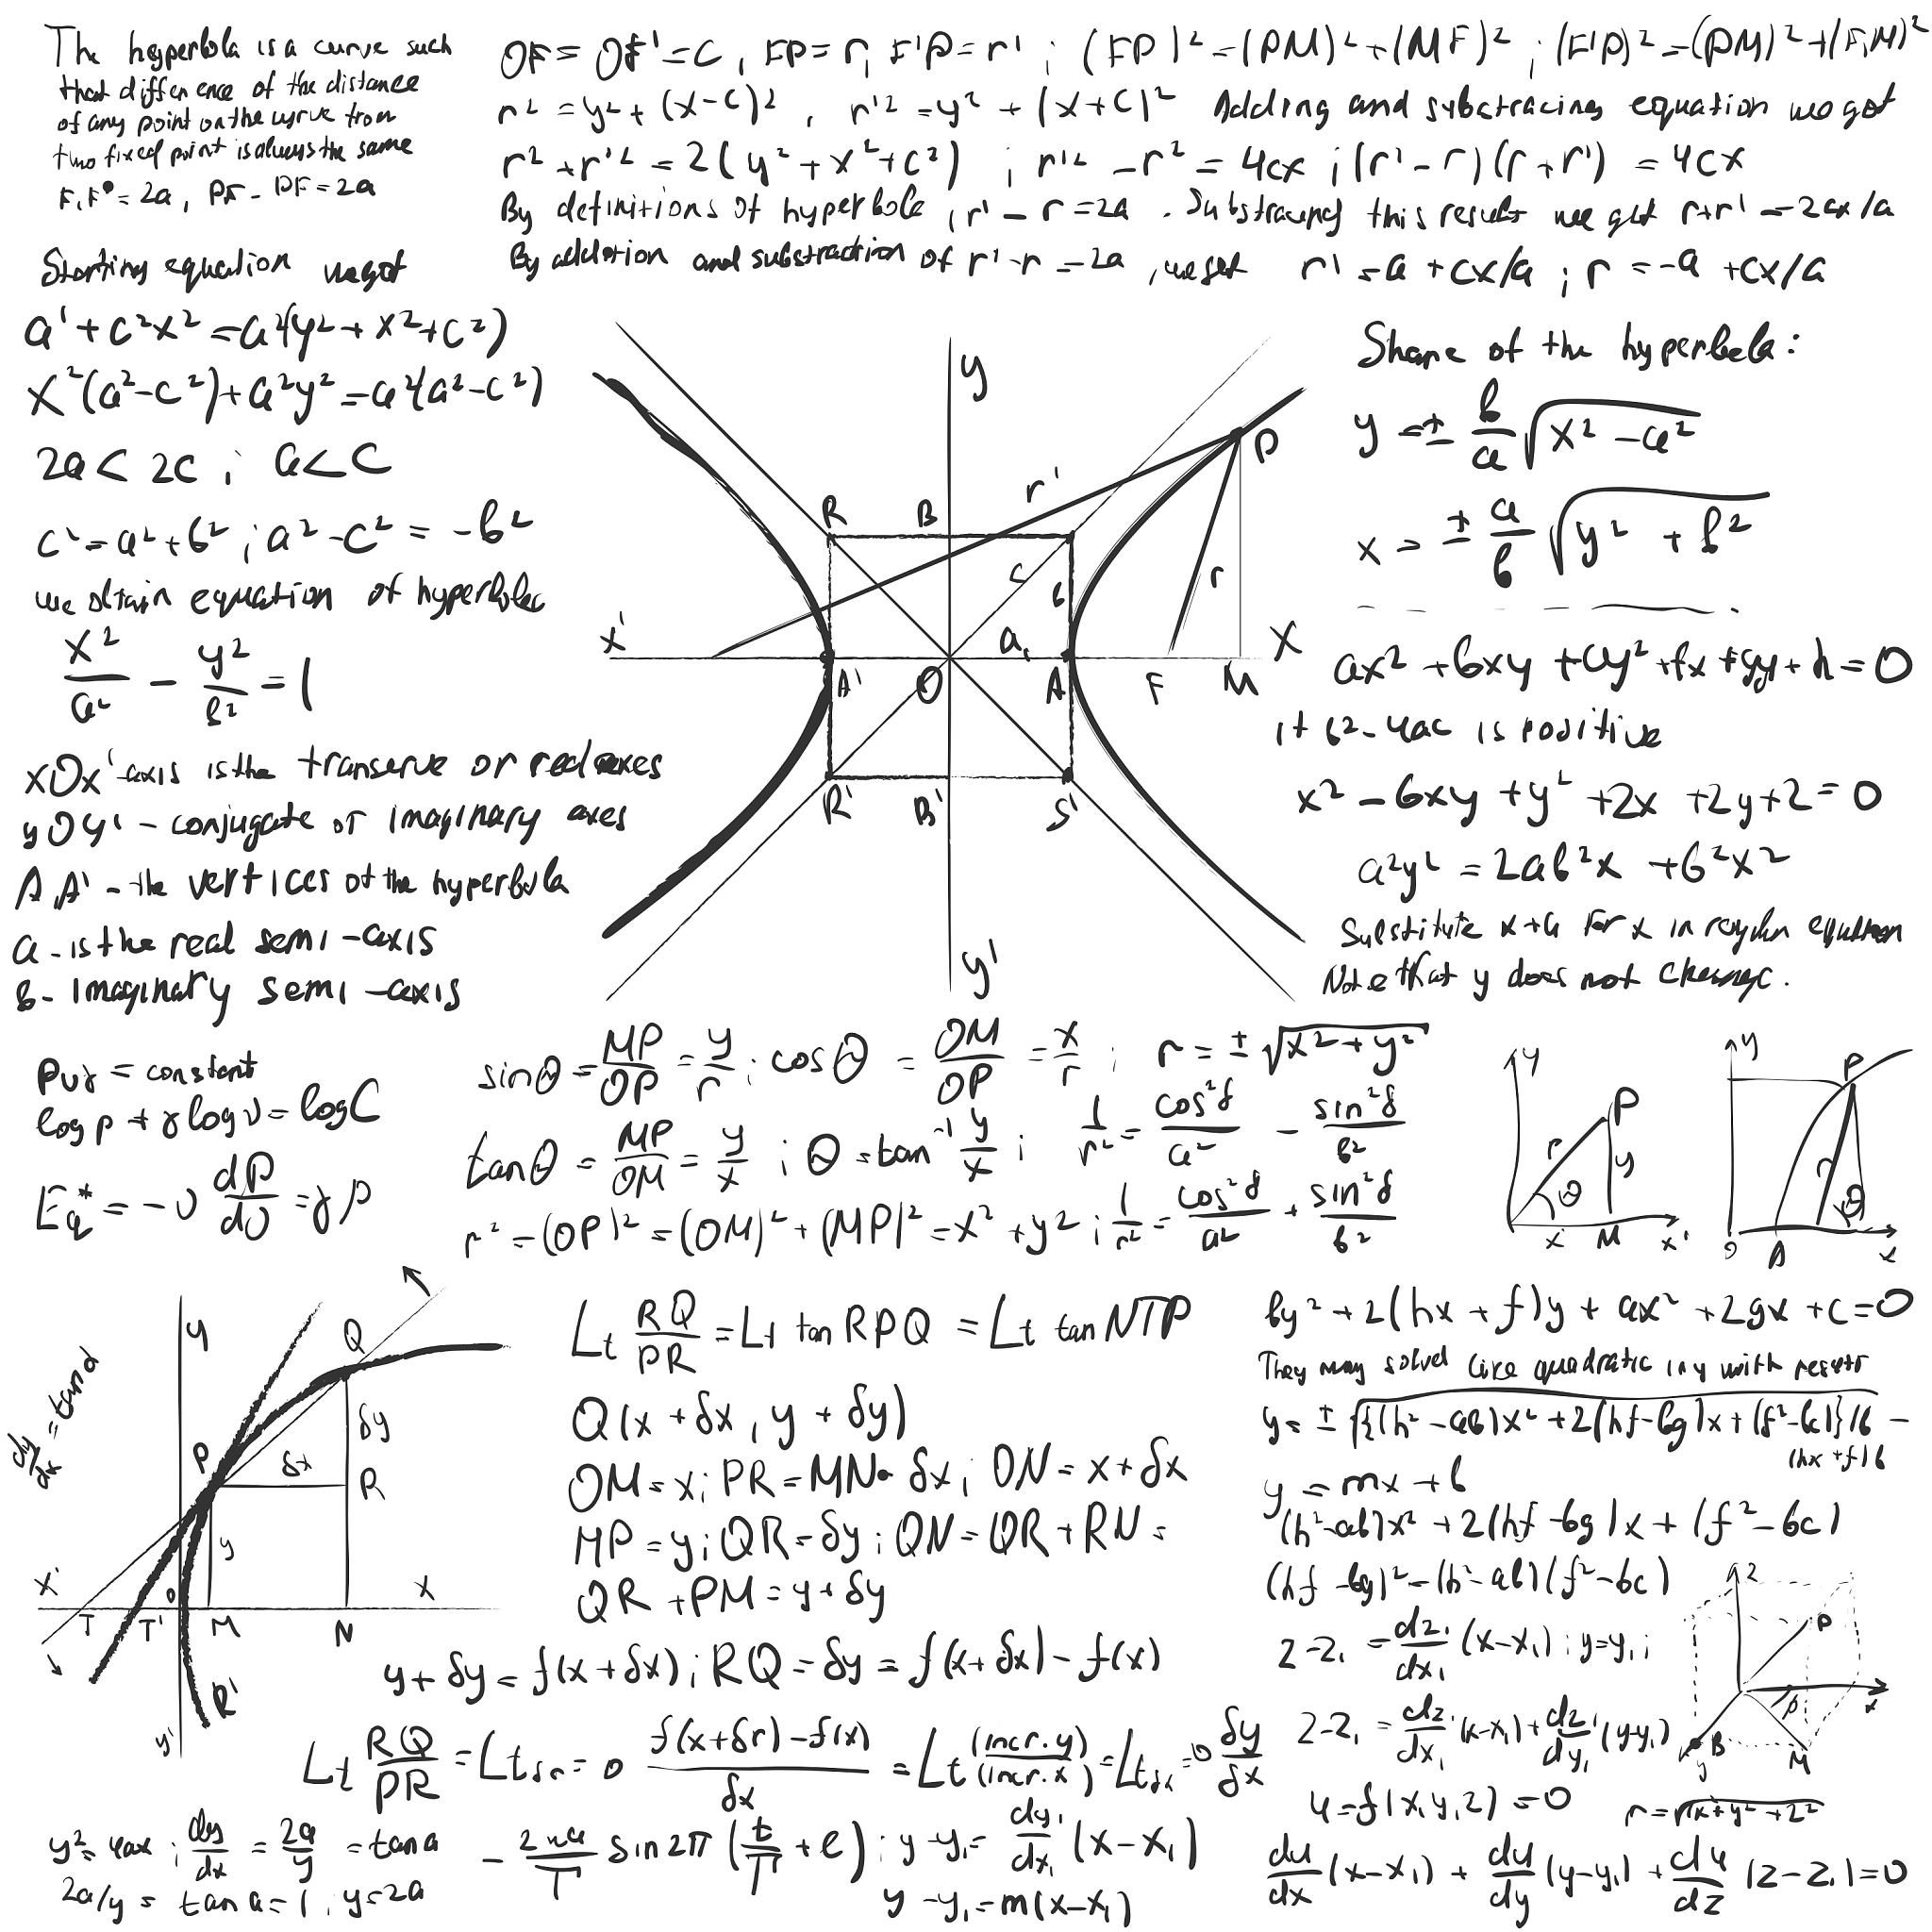 The hyperbola is a curve such
that difference of the distance
of any point on the curve from
two fixed point is always the same
F,F' = 2a, PF - PF = 2a
OF = OF' = c, FP = r, F'P = r' ; (FP)² = (PM)² + (MF)² ; (F'P)² = (PM)² + (F,M)²
r² = y² + (x-c)², r'² = y² + (x+c)² Adding and substracing equation we got
r² + r'² = 2(y² + x² + c²) ; r'² - r² = 4cx ; (r' - r)(r + r') = 4cx
By definitions of hyperbole, r' - r = 2a. Substracing this results we get r+r' = 2cx/a
By addition and substraction of r' - r = 2a, we get r' = a + cx/a ; r = -a + cx/a
Starting equation we got
a' + c²x² = a²(y² + x² + c²)
x²(a² - c²) + a²y² = a²(a² - c²)
2a < 2c ; a < c
c² = a² + b² ; a² - c² = -b²
we obtain equation of hyperbolec
x²/a² - y²/b² = 1
xOx' - axis is the transerve or real axes
yOy' - conjugate or imaginary axes
A,A' - the vertices of the hyperbola
a - is the real semi-axis
b - imaginary semi-axis
y
P
r'
R B
c b
r
x' a, X
A' O A F M
R' B' S'
y'
Shape of the hyperbela:
y = ± b/a √(x² - a²)
x = ± a/b √(y² + b²)
ax² + bxy + cy² + fx + gy + h = 0
if b² - 4ac is positive
x² - 6xy + y² + 2x + 2y + 2 = 0
a²y² = 2ab²x + b²x²
Substitute x+a for x in equation
Note that y does not change.
pυγ = constant
log p + γ log υ = log C
E*q = -υ dP/dυ = γp
sinθ = MP/OP = y/r ; cosθ = OM/OP = x/r ; r = ± √(x² + y²)
tanθ = MP/OM = y/x ; θ = tan⁻¹ y/x ; 1/r² = cos²δ/a² - sin²δ/b²
r² = (OP)² = (OM)² + (MP)² = x² + y² ; 1/r² = cos²δ/a² + sin²δ/b²
y
P
r y
θ
x M x'
y
P
r
θ
O A x
dy/dx = tan α
y
Q
δy
P δx R
y
x' O x
T T' M N
R'
y'
Lt RQ/PR = Lt tan RPQ = Lt tan NTP
Q(x + δx, y + δy)
OM = x ; PR = MN = δx ; ON = x + δx
MP = y ; QR = δy ; QN = QR + RN =
QR + PM = y + δy
y + δy = f(x + δx) ; RQ = δy = f(x + δx) - f(x)
Lt RQ/PR = Lt = 0 f(x+δr) - f(x)/δx = Lt (incr.y)/(incr.x) = Lt δx = 0 δy/δx
y² = 4ax ; dy/dx = 2a/y = tan a
2a/y = tan a = 1, y = 2a
- 2πa/T sin 2π (t/T + e) ; y - y₁ = dy₁/dx₁ (x - x₁)
y - y₁ = m(x - x₁)
by² + 2(hx + f)y + ax² + 2gx + c = 0
They may solved like quadratic in y with
y = ± √{(h² - ab)x² + 2(hf - bg)x + (f² - bc)}/b -
(hx + f)/b
y = mx + b
(h² - ab)x² + 2(hf - bg)x + (f² - bc)
(hf - bg)² = (h² - ab)(f² - bc)
z - z₁ = dz₁/dx₁ (x - x₁) ; y = y₁ ;
z - z₁ = dz₁/dx₁ (x - x₁) + dz₁/dy₁ (y - y₁)
z
P
β x
B M
y
u = f(x, y, z) = 0
r = √(x² + y² + z²)
du/dx (x - x₁) + du/dy (y - y₁) + du/dz (z - z₁) = 0